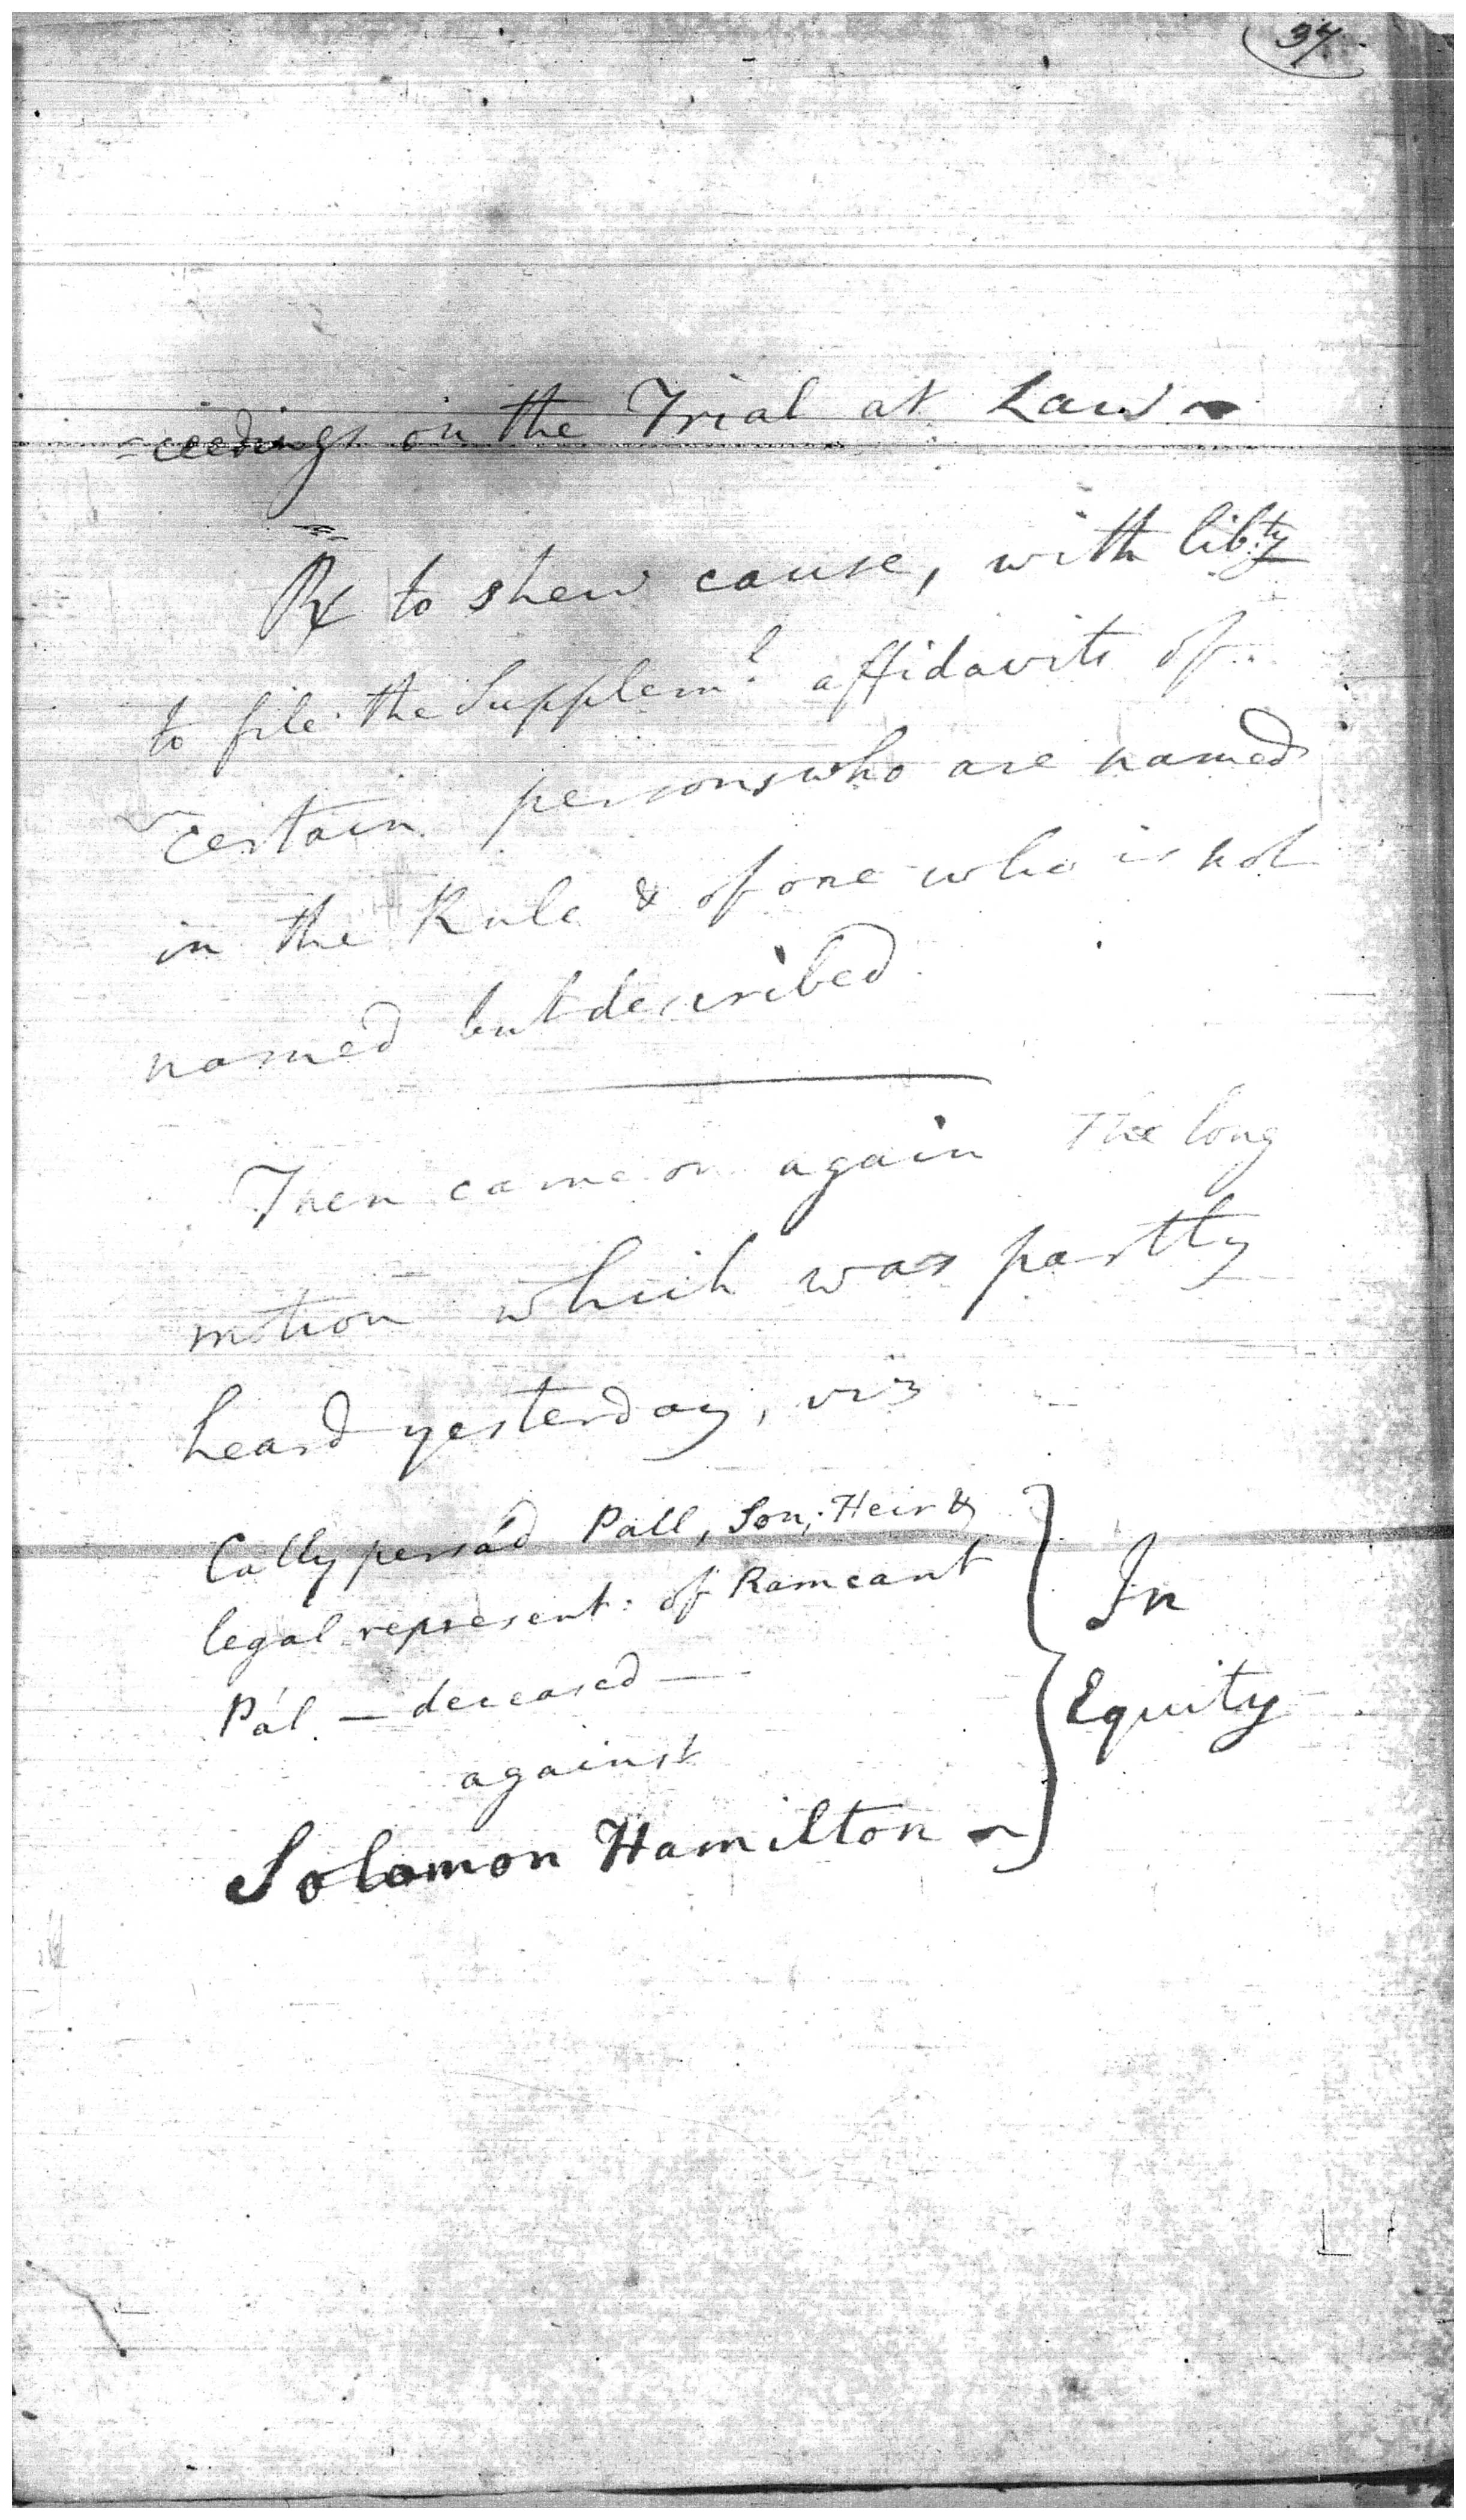 37
=ceedings on the Trial at Law
Rx to shew cause, with libty
to file the Supplem.l affidavits of
certain persons who are named
in the Rule & of one who is not
named but described
Then came on again The long
motion which was partly
heard yesterday, viz
Cally persád Páll, Son, Heir &
legal represent: of Ramcant
Pál — deceased —
against
Solomon Hamilton
} In
Equity